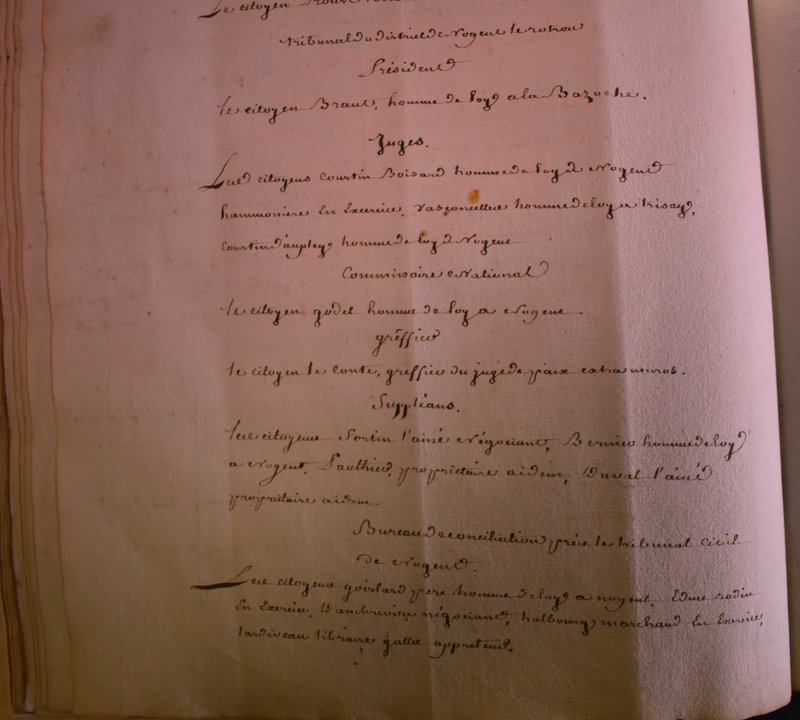 Le citoyen
tribunal du district de Nogent le rotrou
Président
le citoyen Braut, homme de loy a la Bazoche.
Juges.
Les citoyens Courtin Boisard homme de loy à Nogent
hammoniere En Exercice, Vasconcelles homme de loy a trisay,
Courtin d'aupley homme de loy à Nogent
Commissaire National
le citoyen godet homme de loy a Nogent.
gréffier
le citoyen le conte, greffier du juge de paix extra muros.
Suppléans.
les citoyens fortin l'ainé Négociant, Bernier homme de loy
a Nogent, Gauthier proprietaire aidem, Duval l'ainé
proprietaire aidem.
Bureau de conciliation près le tribunal Civil
de Nogent.
Les citoyens goislard pere homme de loy a nogent, Edme rodin
En Exercice, négociant, halbourg marchand En Exercice,
tardiveau libraire, gallet appreteur.